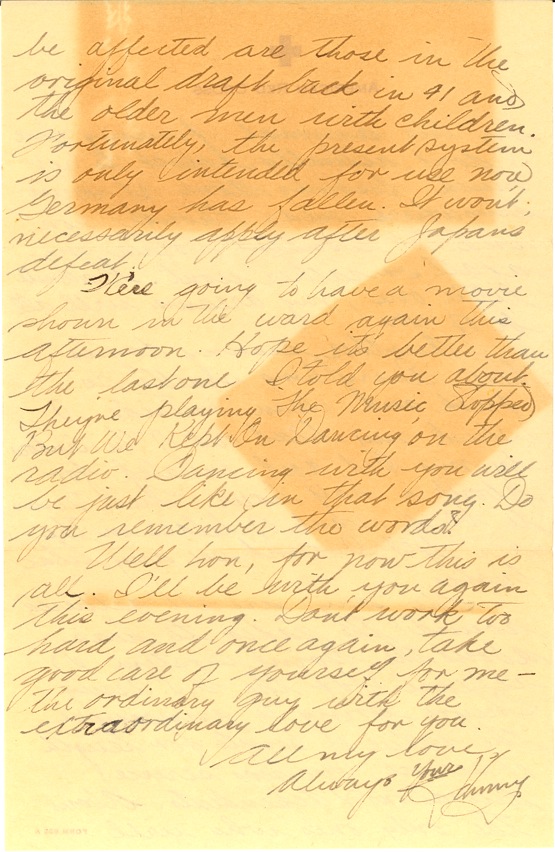 be affected are those in the
original draft back in 41 and
the older men with children.
Fortunately, the present system
is only intended for use now
Germany has fallen. It won't
necessarily apply after Japan's
defeat.
We're going to have a movie
shown in the ward again this
afternoon. Hope it's better than
the last one I told you about.
They're playing "The Music Stopped
But We Kept On Dancing" on the
radio. Dancing with you will
be just like in that song. Do
you remember the words?
Well hon, for now this is
all. I'll be with you again
this evening. Don't work too
hard and once again, take
good care of yourself for me —
the ordinary guy with the
extraordinary love for you.
All my love,
Always Your